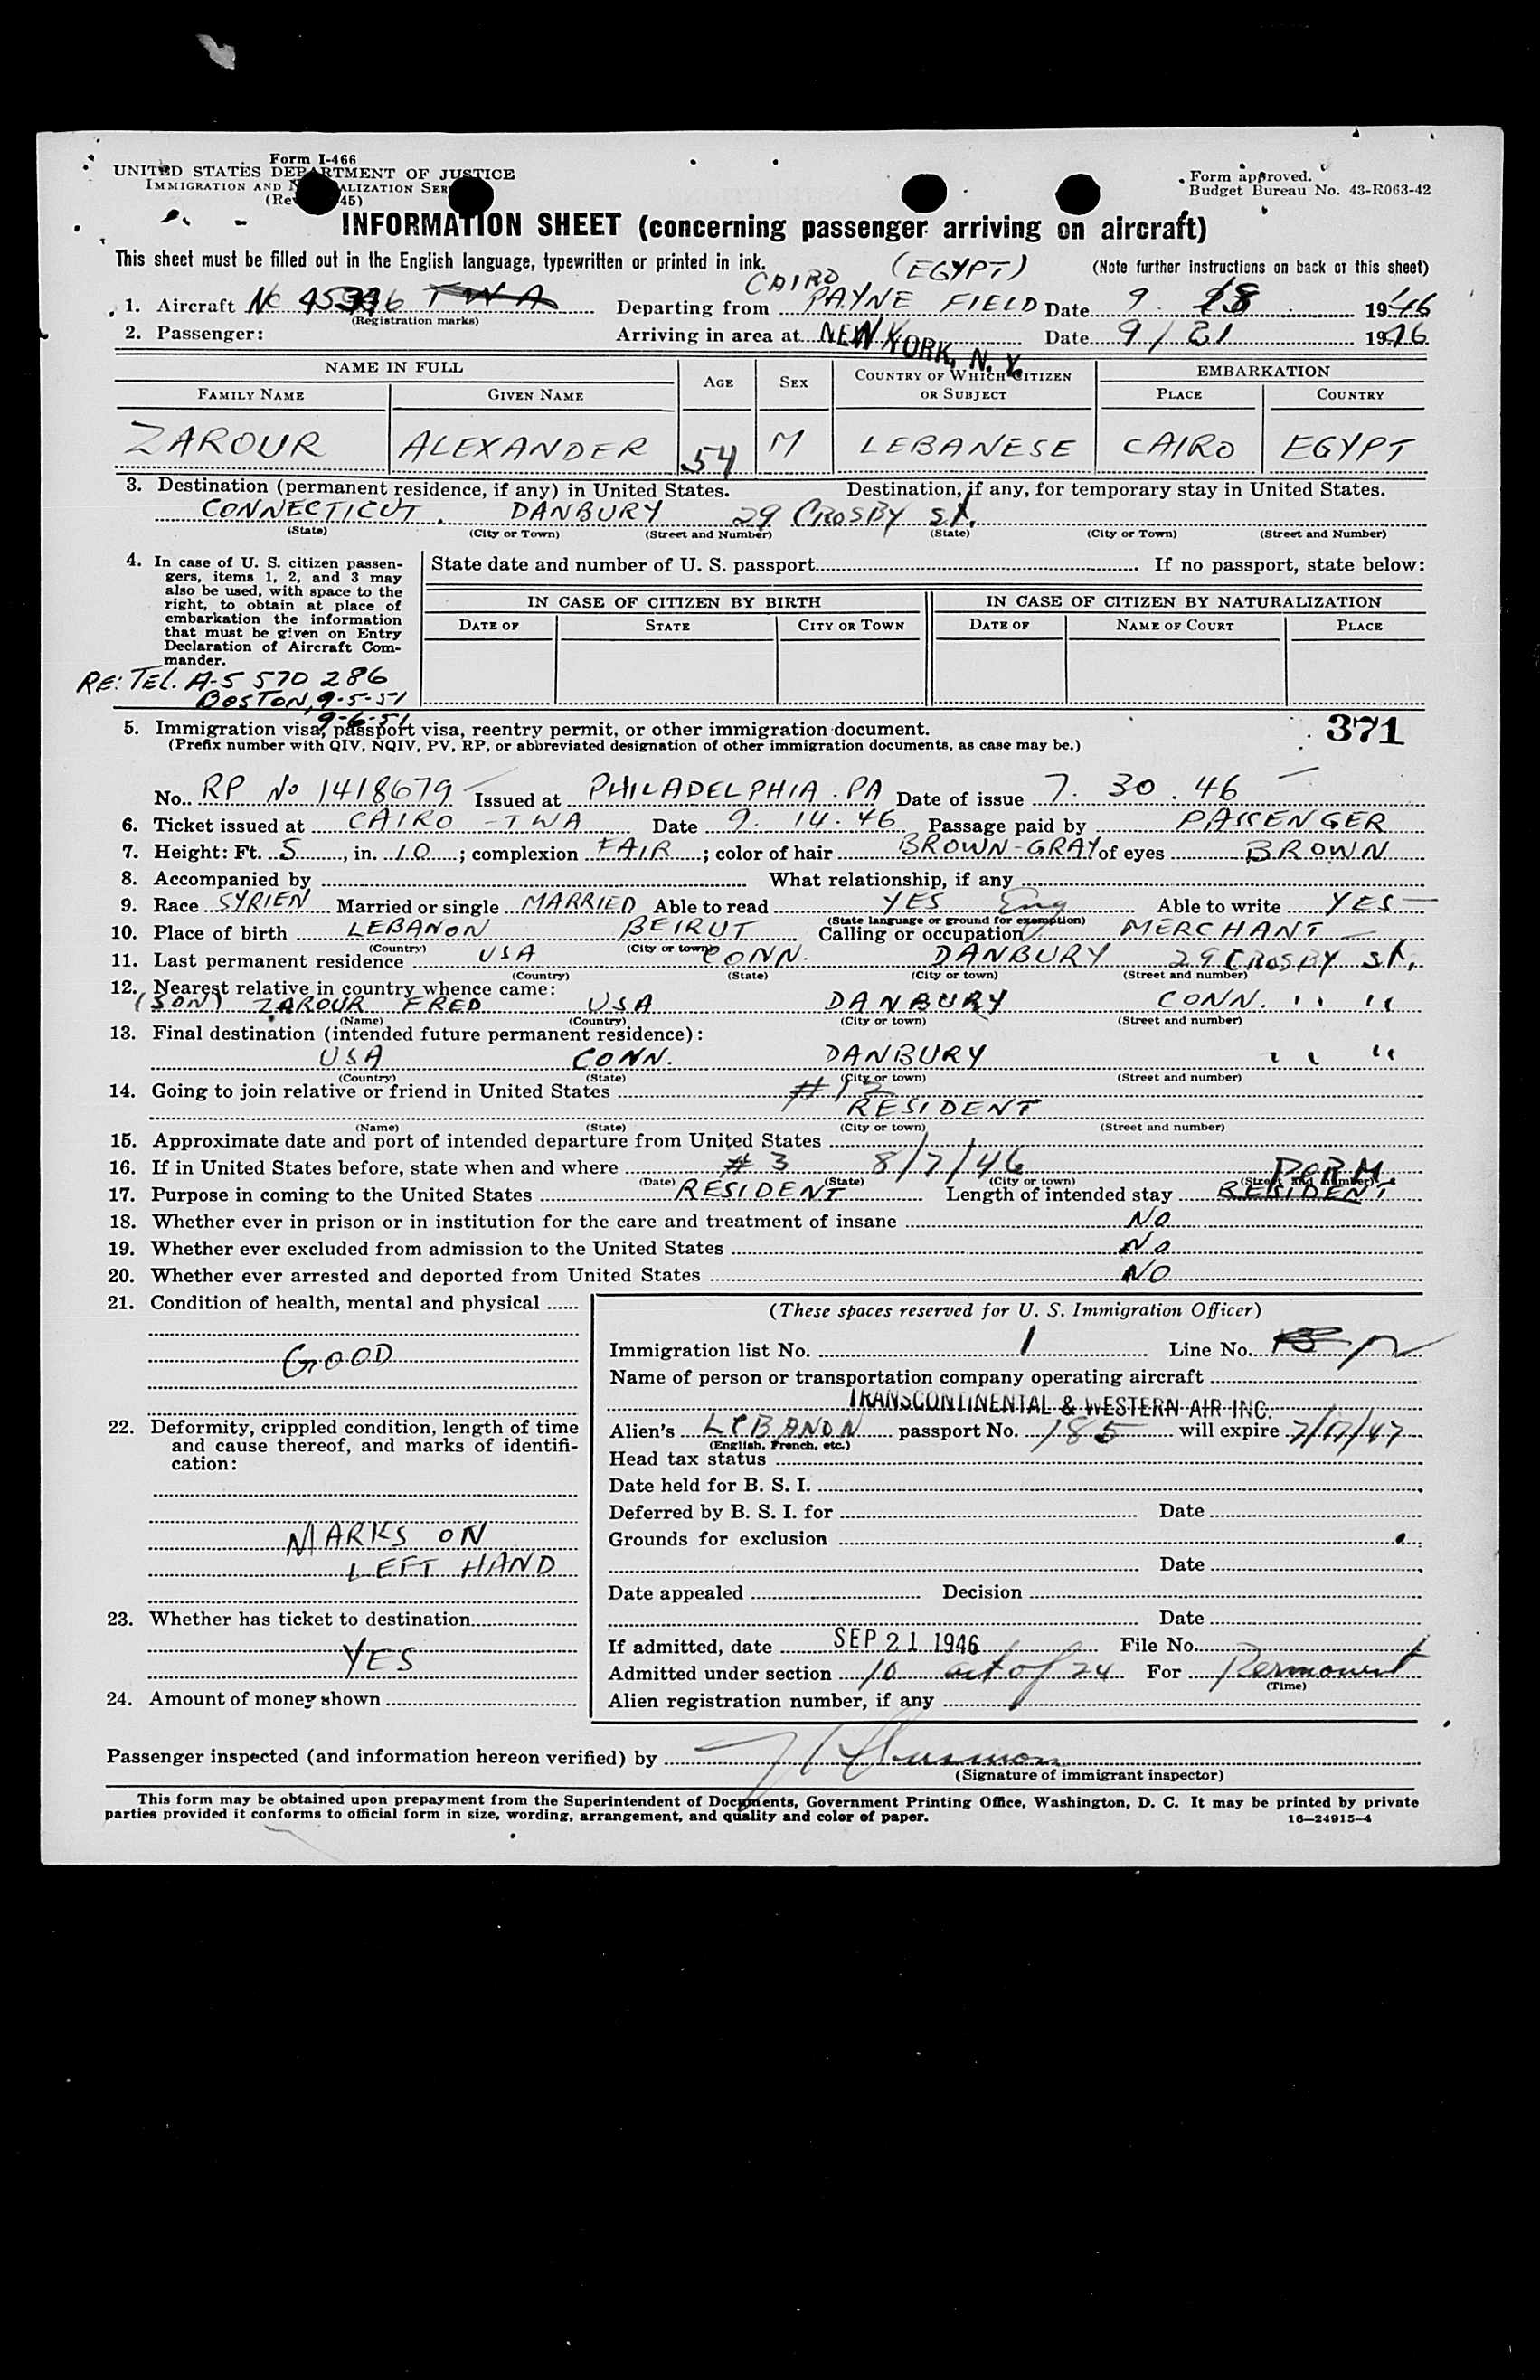 Form I-466
UNITED STATES DEPARTMENT OF JUSTICE
IMMIGRATION AND NATURALIZATION SER
(Rev 45)
Form approved.
Budget Bureau No. 43-R063-42
INFORMATION SHEET (concerning passenger arriving on aircraft)
This sheet must be filled out in the English language, typewritten or printed in ink.
(Note further instructions on back of this sheet)
CAIRO (EGYPT)
1. Aircraft NC TWA Departing from PAYNE FIELD Date 9 18 1946
(Registration marks)
2. Passenger: Arriving in area at NEW YORK, N. Y. Date 9/21 1946
NAME IN FULL AGE SEX COUNTRY OF WHICH CITIZEN OR SUBJECT EMBARKATION
FAMILY NAME GIVEN NAME PLACE COUNTRY
ZAROUR ALEXANDER 54 M LEBANESE CAIRO EGYPT
3. Destination (permanent residence, if any) in United States. Destination, if any, for temporary stay in United States.
CONNECTICUT. DANBURY 29 CROSBY St.
(State) (City or Town) (Street and Number) (State) (City or Town) (Street and Number)
4. In case of U. S. citizen passengers, items 1, 2, and 3 may
also be used, with space to the
right, to obtain at place of
embarkation the information
that must be given on Entry
Declaration of Aircraft Commander.
State date and number of U. S. passport If no passport, state below:
IN CASE OF CITIZEN BY BIRTH IN CASE OF CITIZEN BY NATURALIZATION
DATE OF STATE CITY OR TOWN DATE OF NAME OF COURT PLACE
RE: TEL. A-5 570 286
BOSTON, 9-5-51
9-6-51
371
5. Immigration visa, passport visa, reentry permit, or other immigration document.
(Prefix number with QIV, NQIV, PV, RP, or abbreviated designation of other immigration documents, as case may be.)
No. RP No 1418679 Issued at PHILADELPHIA. PA Date of issue 7. 30. 46
6. Ticket issued at CAIRO - TWA Date 9. 14. 46 Passage paid by PASSENGER
7. Height: Ft. 5, in. 10; complexion FAIR; color of hair BROWN-GRAY of eyes BROWN
8. Accompanied by What relationship, if any
9. Race SYRIEN Married or single MARRIED Able to read YES Eng Able to write YES
(State language or ground for exemption)
10. Place of birth LEBANON BEIRUT Calling or occupation MERCHANT
(Country) (City or town)
11. Last permanent residence USA CONN. DANBURY 29 CROSBY St.
(Country) (State) (City or town) (Street and number)
12. Nearest relative in country whence came:
(SON) ZAROUR FRED USA DANBURY CONN. " "
(Name) (Country) (City or town) (Street and number)
13. Final destination (intended future permanent residence):
USA CONN. DANBURY " "
(Country) (State) (City or town) (Street and number)
14. Going to join relative or friend in United States #12
RESIDENT
(Name) (State) (City or town) (Street and number)
15. Approximate date and port of intended departure from United States
16. If in United States before, state when and where #3 8/7/46
(Date) (State) (City or town) (Street and number)
PERM.
17. Purpose in coming to the United States RESIDENT Length of intended stay RESIDENT
18. Whether ever in prison or in institution for the care and treatment of insane NO
19. Whether ever excluded from admission to the United States NO
20. Whether ever arrested and deported from United States NO
21. Condition of health, mental and physical
GOOD
22. Deformity, crippled condition, length of time
and cause thereof, and marks of identification:
MARKS ON
LEFT HAND
23. Whether has ticket to destination
YES
24. Amount of money shown
(These spaces reserved for U. S. Immigration Officer)
Immigration list No. 1 Line No. 12
Name of person or transportation company operating aircraft
TRANSCONTINENTAL & WESTERN AIR INC.
Alien's LEBANON passport No. 185 will expire 7/17/47
(English, French, etc.)
Head tax status
Date held for B. S. I.
Deferred by B. S. I. for Date
Grounds for exclusion
Date
Date appealed Decision
Date
If admitted, date SEP 21 1946 File No.
Admitted under section 10 act of 24 For Permanent
(Time)
Alien registration number, if any
Passenger inspected (and information hereon verified) by
(Signature of immigrant inspector)
This form may be obtained upon prepayment from the Superintendent of Documents, Government Printing Office, Washington, D. C. It may be printed by private
parties provided it conforms to official form in size, wording, arrangement, and quality and color of paper.
16—24915-4